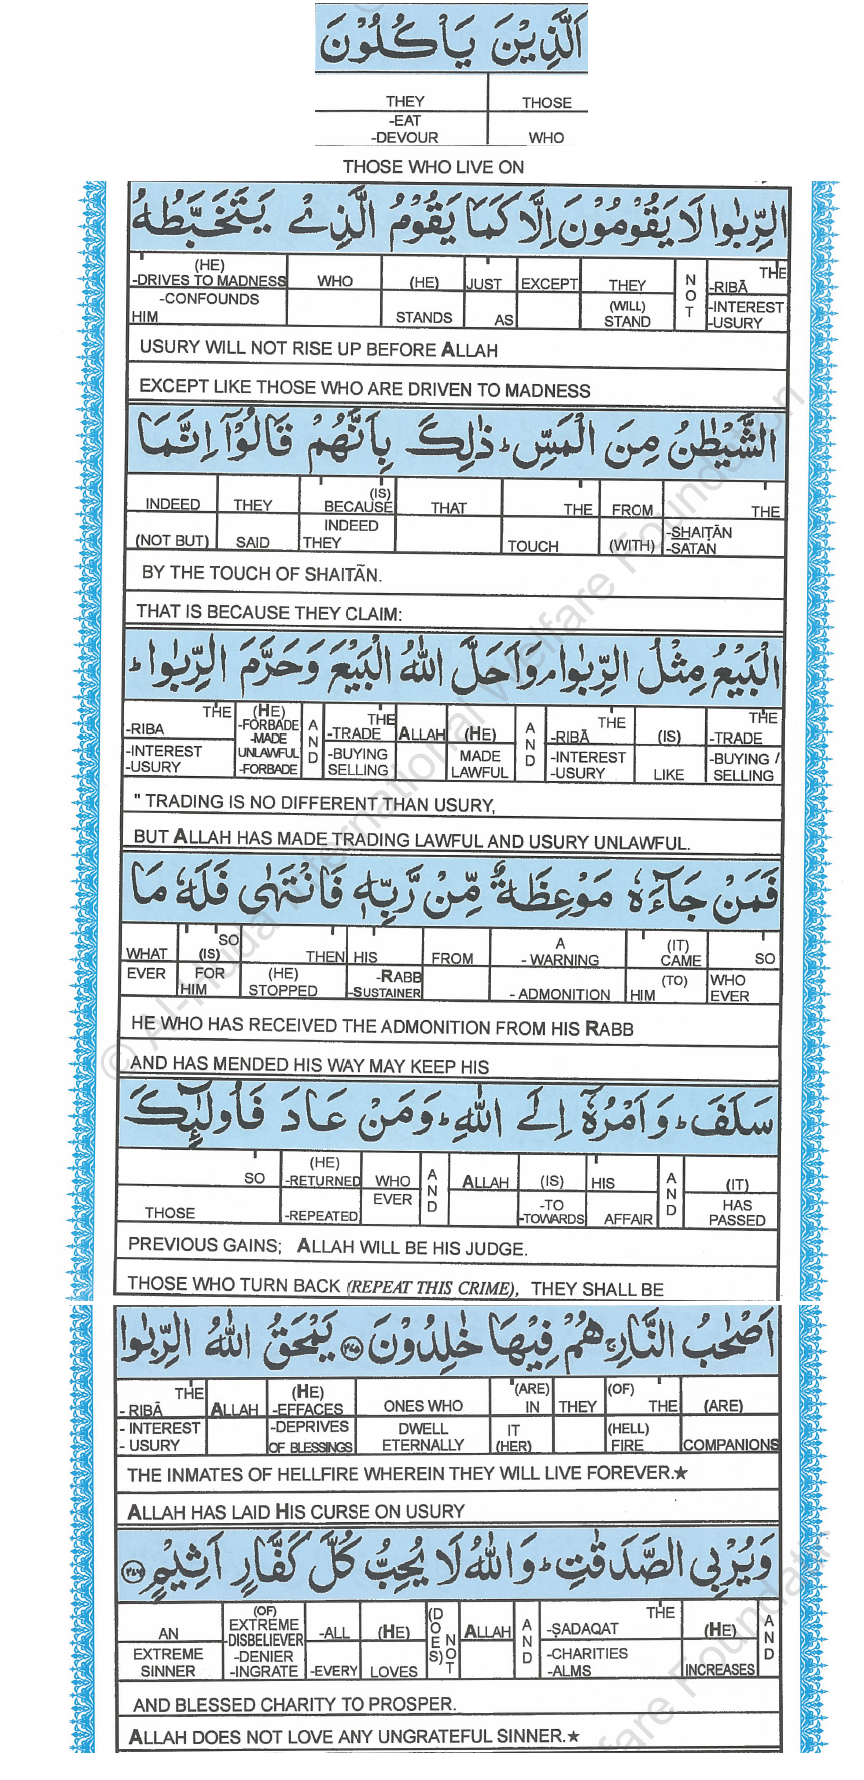 اَلَّذِيْنَ يَاْكُلُوْنَ
THEY THOSE
-EAT
-DEVOUR WHO
THOSE WHO LIVE ON
الرِّبٰوا لَا يَقُوْمُوْنَ اِلَّا كَمَا يَقُوْمُ الَّذِىْ يَتَخَبَّطُهُ
(HE) -DRIVES TO MADNESS WHO (HE) JUST EXCEPT THEY NOT THE -RIBĀ
-CONFOUNDS HIM STANDS AS (WILL) STAND -INTEREST -USURY
USURY WILL NOT RISE UP BEFORE ALLAH
EXCEPT LIKE THOSE WHO ARE DRIVEN TO MADNESS
الشَّيْطٰنُ مِنَ الْمَسِّ ؕ ذٰلِكَ بِاَنَّهُمْ قَالُوْۤا اِنَّمَا
INDEED THEY (IS) BECAUSE THAT THE FROM THE
(NOT BUT) SAID INDEED THEY TOUCH (WITH) -SHAIṬĀN -SATAN
BY THE TOUCH OF SHAITĀN.
THAT IS BECAUSE THEY CLAIM:
الْبَيْعُ مِثْلُ الرِّبٰوا ۘ وَاَحَلَّ اللّٰهُ الْبَيْعَ وَحَرَّمَ الرِّبٰوا ؕ
THE -RIBA (HE) -FORBADE -MADE UNLAWFUL -FORBADE AND THE -TRADE ALLAH (HE) AND THE -RIBĀ (IS) THE -TRADE
-INTEREST -USURY -BUYING SELLING MADE LAWFUL -INTEREST -USURY LIKE -BUYING / SELLING
" TRADING IS NO DIFFERENT THAN USURY,
BUT ALLAH HAS MADE TRADING LAWFUL AND USURY UNLAWFUL.
فَمَنْ جَآءَهٗ مَوْعِظَةٌ مِّنْ رَّبِّهٖ فَانْتَهٰى فَلَهٗ مَا
WHAT SO (IS) THEN HIS FROM A - WARNING (IT) CAME SO
EVER FOR HIM (HE) STOPPED -RABB -SUSTAINER - ADMONITION (TO) HIM WHO EVER
HE WHO HAS RECEIVED THE ADMONITION FROM HIS RABB
AND HAS MENDED HIS WAY MAY KEEP HIS
سَلَفَ ؕ وَاَمْرُهٗۤ اِلَى اللّٰهِ ؕ وَمَنْ عَادَ فَاُولٰٓئِكَ
SO (HE) -RETURNED WHO AND ALLAH (IS) HIS AND (IT)
THOSE -REPEATED EVER -TO -TOWARDS AFFAIR HAS PASSED
PREVIOUS GAINS; ALLAH WILL BE HIS JUDGE.
THOSE WHO TURN BACK (REPEAT THIS CRIME), THEY SHALL BE
اَصْحٰبُ النَّارِ ۚ هُمْ فِيْهَا خٰلِدُوْنَ ﴿۲۷۵﴾ يَمْحَقُ اللّٰهُ الرِّبٰوا
THE - RIBĀ ALLAH (HE) -EFFACES ONES WHO (ARE) IN THEY (OF) THE (ARE)
- INTEREST - USURY -DEPRIVES OF BLESSINGS DWELL ETERNALLY IT (HER) (HELL) FIRE COMPANIONS
THE INMATES OF HELLFIRE WHEREIN THEY WILL LIVE FOREVER.★
ALLAH HAS LAID HIS CURSE ON USURY
وَيُرْبِى الصَّدَقٰتِ ؕ وَاللّٰهُ لَا يُحِبُّ كُلَّ كَفَّارٍ اَثِيْمٍ ﴿۲۷۶﴾
AN (OF) EXTREME -DISBELIEVER -ALL (HE) (DOES) NOT ALLAH AND THE -ṢADAQAT (HE) AND
EXTREME SINNER -DENIER -INGRATE -EVERY LOVES -CHARITIES -ALMS INCREASES
AND BLESSED CHARITY TO PROSPER.
ALLAH DOES NOT LOVE ANY UNGRATEFUL SINNER.★
© Al-Huda International Welfare Foundation